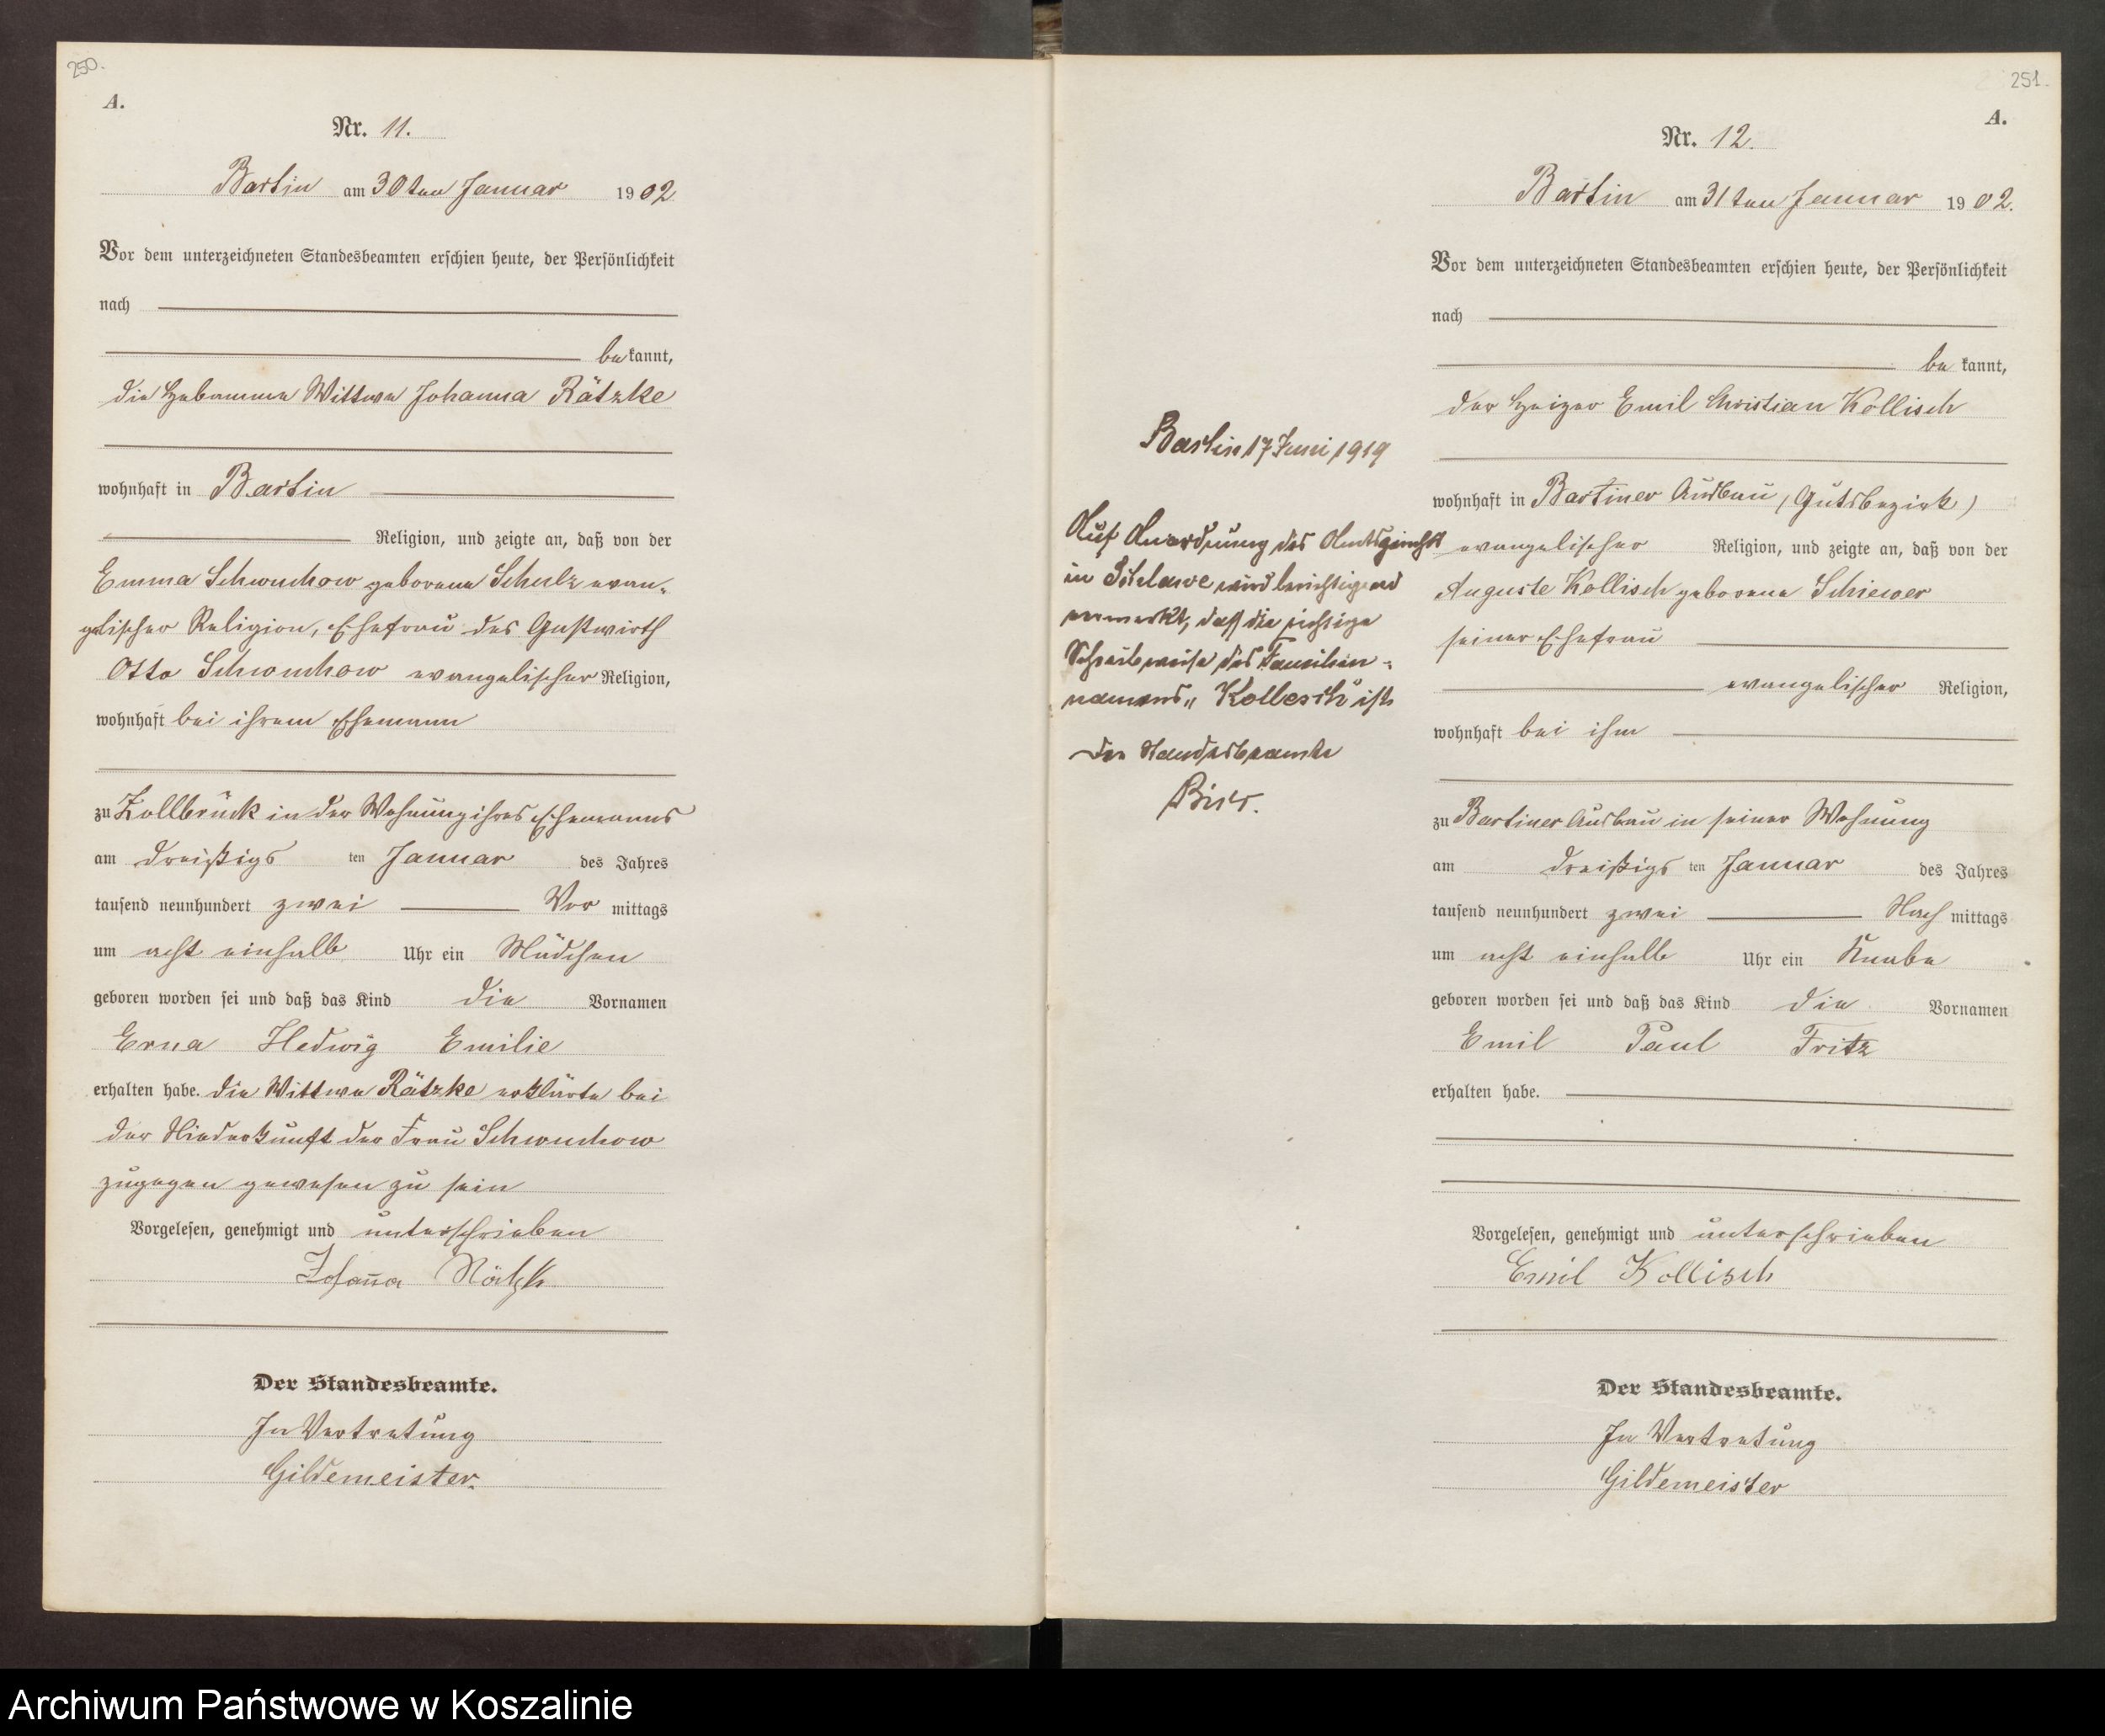 250.
A.
Nr. 11.
Bartin am 30ten Januar 1902
Vor dem unterzeichneten Standesbeamten erschien heute, der Persönlichkeit
nach
bekannt,
die Hebamme Wittwe Johanna Rätzke
wohnhaft in Bartin
Religion, und zeigte an, daß von der
Emma Schwuchow geborene Schulz evan-
gelischer Religion, Ehefrau des Gastwirth
Otto Schwuchow evangelischer Religion,
wohnhaft bei ihrem Ehemann
zu Zollbrück in der Wohnung ihres Ehemanns
am dreißigs ten Januar des Jahres
tausend neunhundert zwei Vor mittags
um acht einhalb Uhr ein Mädchen
geboren worden sei und daß das Kind die Vornamen
Erna Hedwig Emilie
erhalten habe. Die Wittwe Rätzke erklärte bei
der Niederkunft der Frau Schwuchow
zugegen gewesen zu sein
Vorgelesen, genehmigt und unterschrieben
Johanna Rätzke
Der Standesbeamte.
In Vertretung
Gildemeister.
251.
A.
Nr. 12.
Bartin am 31ten Januar 1902.
Vor dem unterzeichneten Standesbeamten erschien heute, der Persönlichkeit
nach
bekannt,
der Heizer Emil Christian Kollisch
wohnhaft in Bartiner Ausbau (Gutsbezirk)
evangelischer Religion, und zeigte an, daß von der
Auguste Kollisch geborene Schiewer
seiner Ehefrau
evangelischer Religion,
wohnhaft bei ihm
zu Bartiner Ausbau in seiner Wohnung
am dreißigs ten Januar des Jahres
tausend neunhundert zwei Nach mittags
um acht einhalb Uhr ein Knabe
geboren worden sei und daß das Kind die Vornamen
Emil Paul Fritz
erhalten habe.
Vorgelesen, genehmigt und unterschrieben
Emil Kollisch
Der Standesbeamte.
In Vertretung
Gildemeister
Bartin 17 Juni 1919
Auf Anordnung des Amtsgerichts
in Schlawe wird berichtigend
vermerkt, daß die richtige
Schreibweise des Familien-
namens „Kollesch" ist
Der Standesbeamte
Archiwum Państwowe w Koszalinie